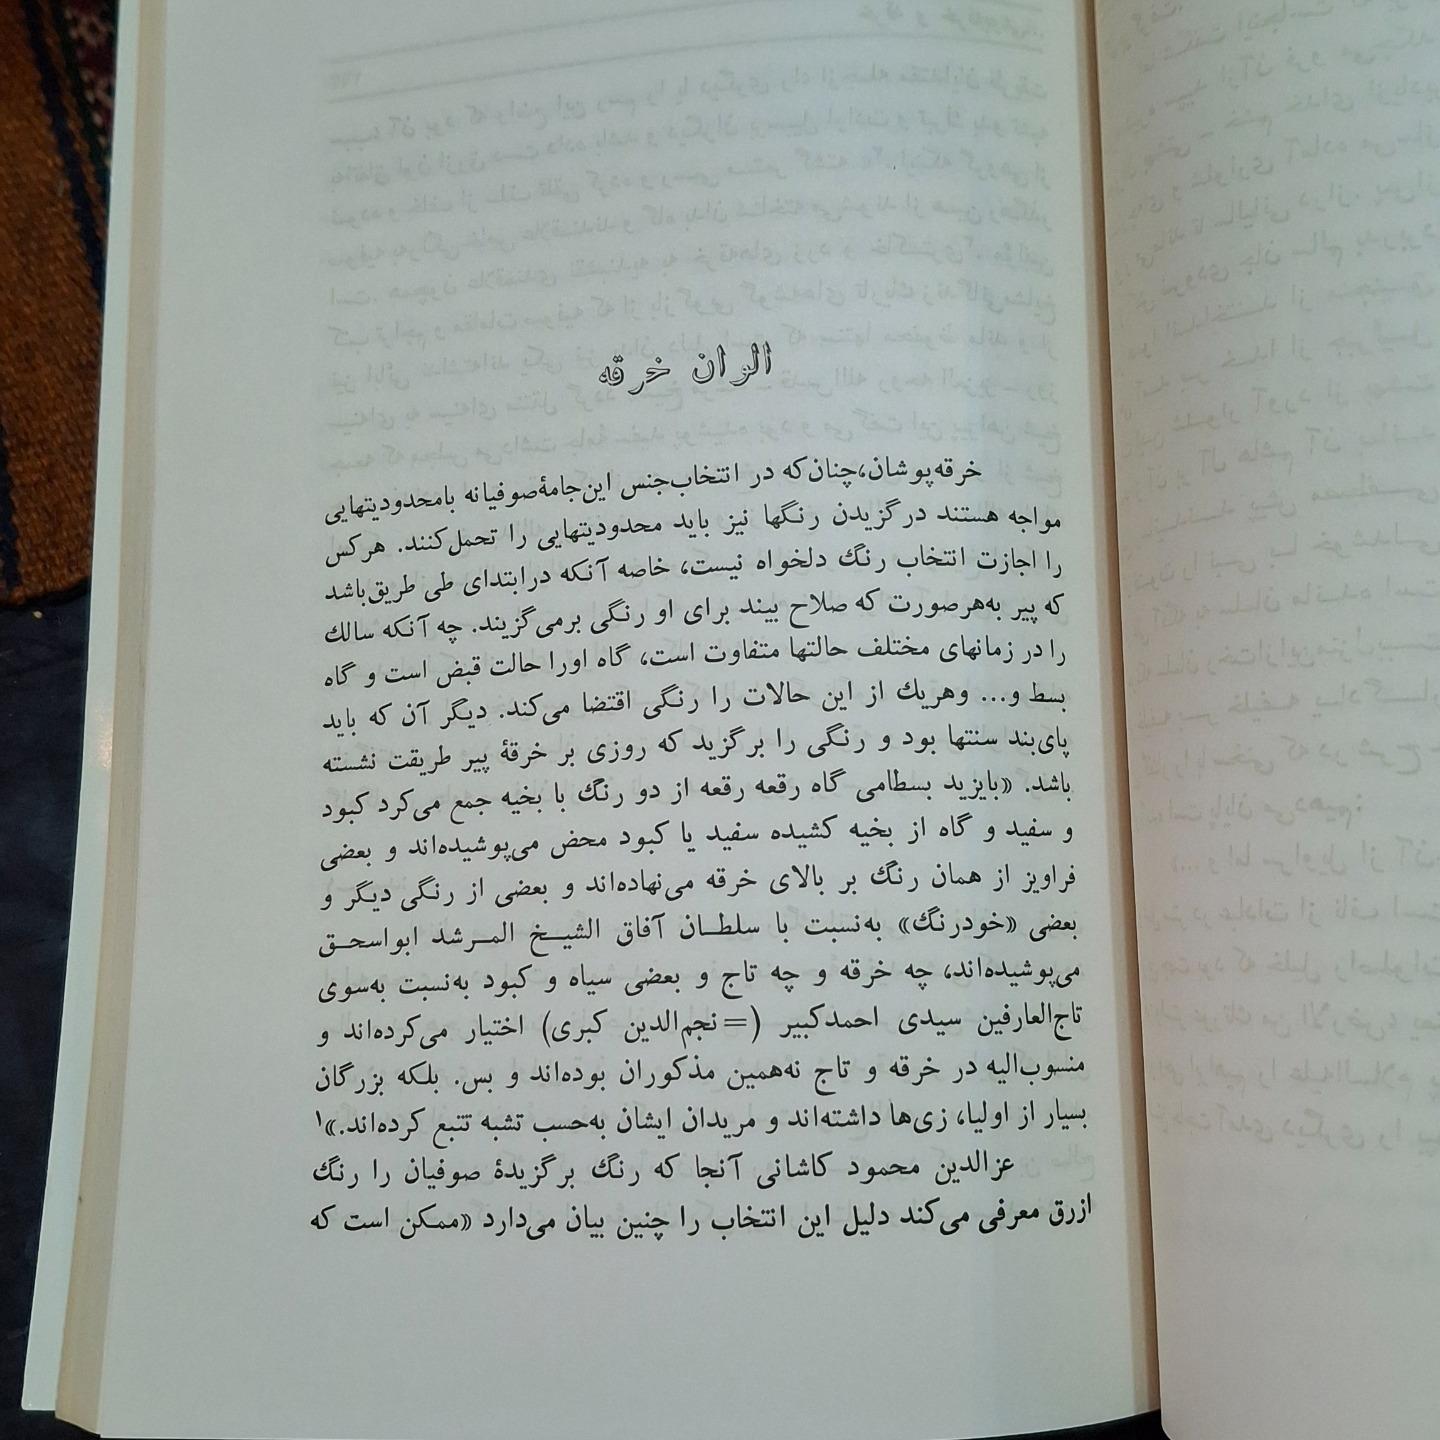 الوان خرقه
خرقه‌پوشان، چنان‌که در انتخاب جنس این جامهٔ صوفیانه با محدودیتهایی
مواجه هستند در گزیدن رنگها نیز باید محدودیتهایی را تحمل کنند. هر کس
را اجازت انتخاب رنگ دلخواه نیست، خاصه آنکه در ابتدای طی طریق باشد
که پیر به‌هر صورت که صلاح بیند برای او رنگی برمی‌گزیند. چه آنکه سالك
را در زمانهای مختلف حالتها متفاوت است، گاه اورا حالت قبض است و گاه
بسط و... وهریك از این حالات را رنگی اقتضا می‌کند. دیگر آن که باید
پای‌بند سنتها بود و رنگی را برگزید که روزی بر خرقهٔ پیر طریقت نشسته
باشد. «بایزید بسطامی گاه رقعه رقعه از دو رنگ با بخیه جمع می‌کرد کبود
و سفید و گاه از بخیه کشیده سفید یا کبود محض می‌پوشیده‌اند و بعضی
فراویز از همان رنگ بر بالای خرقه می‌نهاده‌اند و بعضی از رنگی دیگر و
بعضی «خودرنگ» به‌نسبت با سلطان آفاق الشیخ المرشد ابواسحق
می‌پوشیده‌اند، چه خرقه و چه تاج و بعضی سیاه و کبود به‌نسبت به‌سوی
تاج‌العارفین سیدی احمدکبیر (=نجم‌الدین کبری) اختیار می‌کرده‌اند و
منسوب‌الیه در خرقه و تاج نه‌همین مذکوران بوده‌اند و بس. بلکه بزرگان
بسیار از اولیا، زی‌ها داشته‌اند و مریدان ایشان به‌حسب تشبه تتبع کرده‌اند.»۱
عزالدین محمود کاشانی آنجا که رنگ برگزیدهٔ صوفیان را رنگ
ازرق معرفی می‌کند دلیل این انتخاب را چنین بیان می‌دارد «ممکن است که